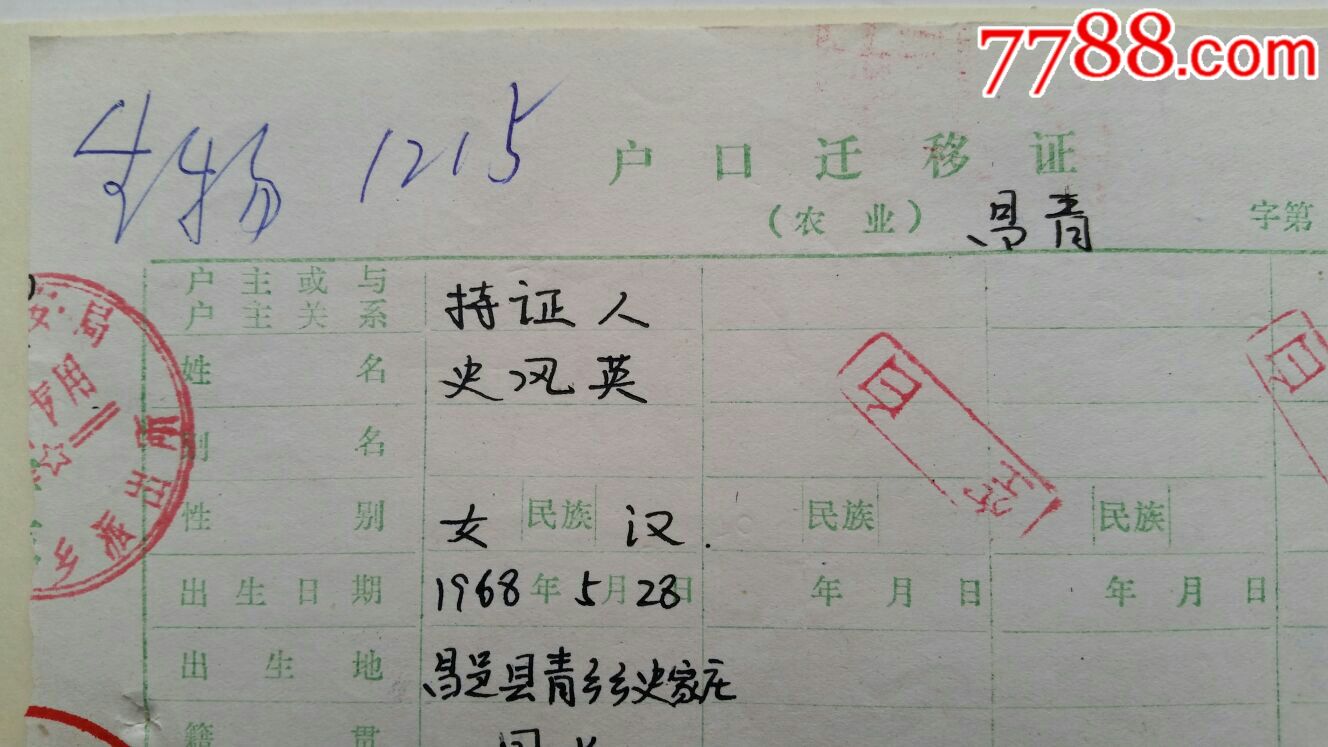 7788.com
生物 1215
户口迁移证
(农业) 昌青 字第
户主或与
户主关系 持证人
姓名 史风英
别名
性别 女 民族 汉. 民族 民族
出生日期 1968年5月28日 年月日 年月日
出生地 昌邑县青乡乡史家庄
籍贯
局
专用
乡派出所